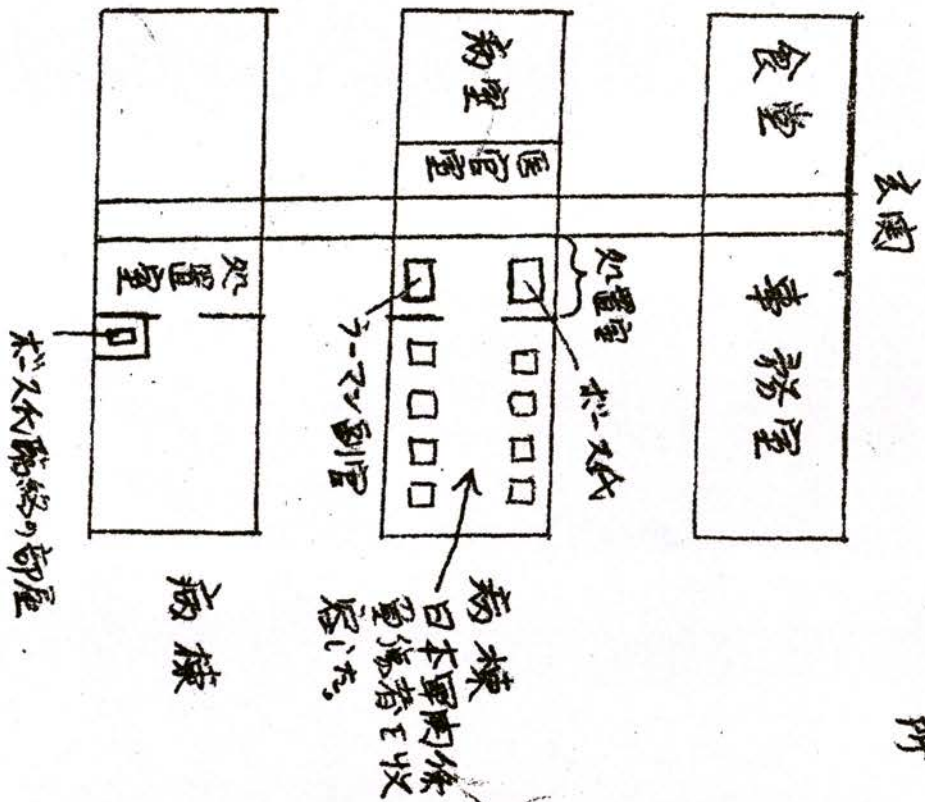 玄関
食堂
事務室
病室
医官室
処置室
ボース氏
ラーマン副官
病棟
日本軍関係
重傷者を収
容した。
処置室
ボース氏臨終の部屋
病棟
所